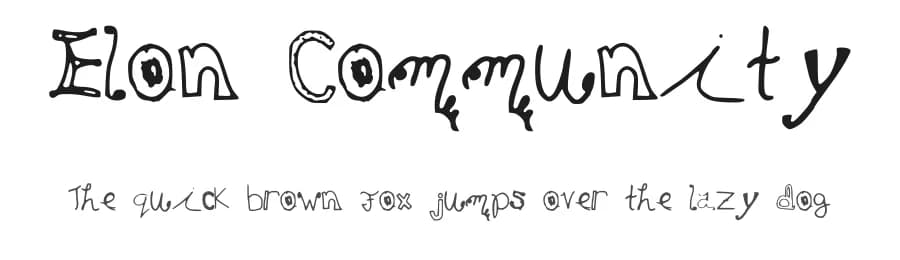 Elon Community
The quick brown fox jumps over the lazy dog